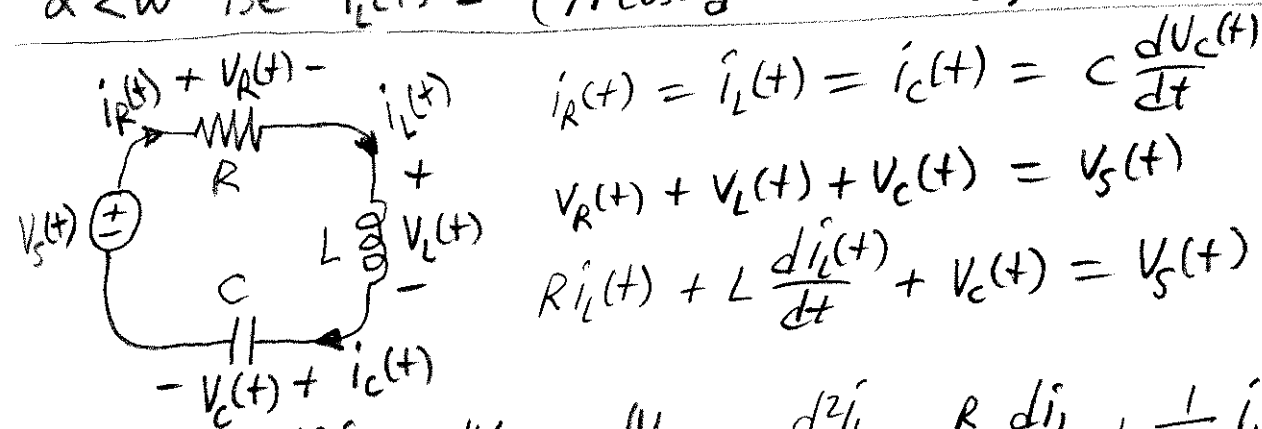 α < ω
i_R(t) + V_R(t) - i_L(t)
R
V_s(t) + - L + V_L(t) -
C
- V_c(t) + i_c(t)
i_R(t) = i_L(t) = i_c(t) = C dV_c(t)/dt
V_R(t) + V_L(t) + V_c(t) = V_s(t)
R i_L(t) + L di_L(t)/dt + V_c(t) = V_s(t)